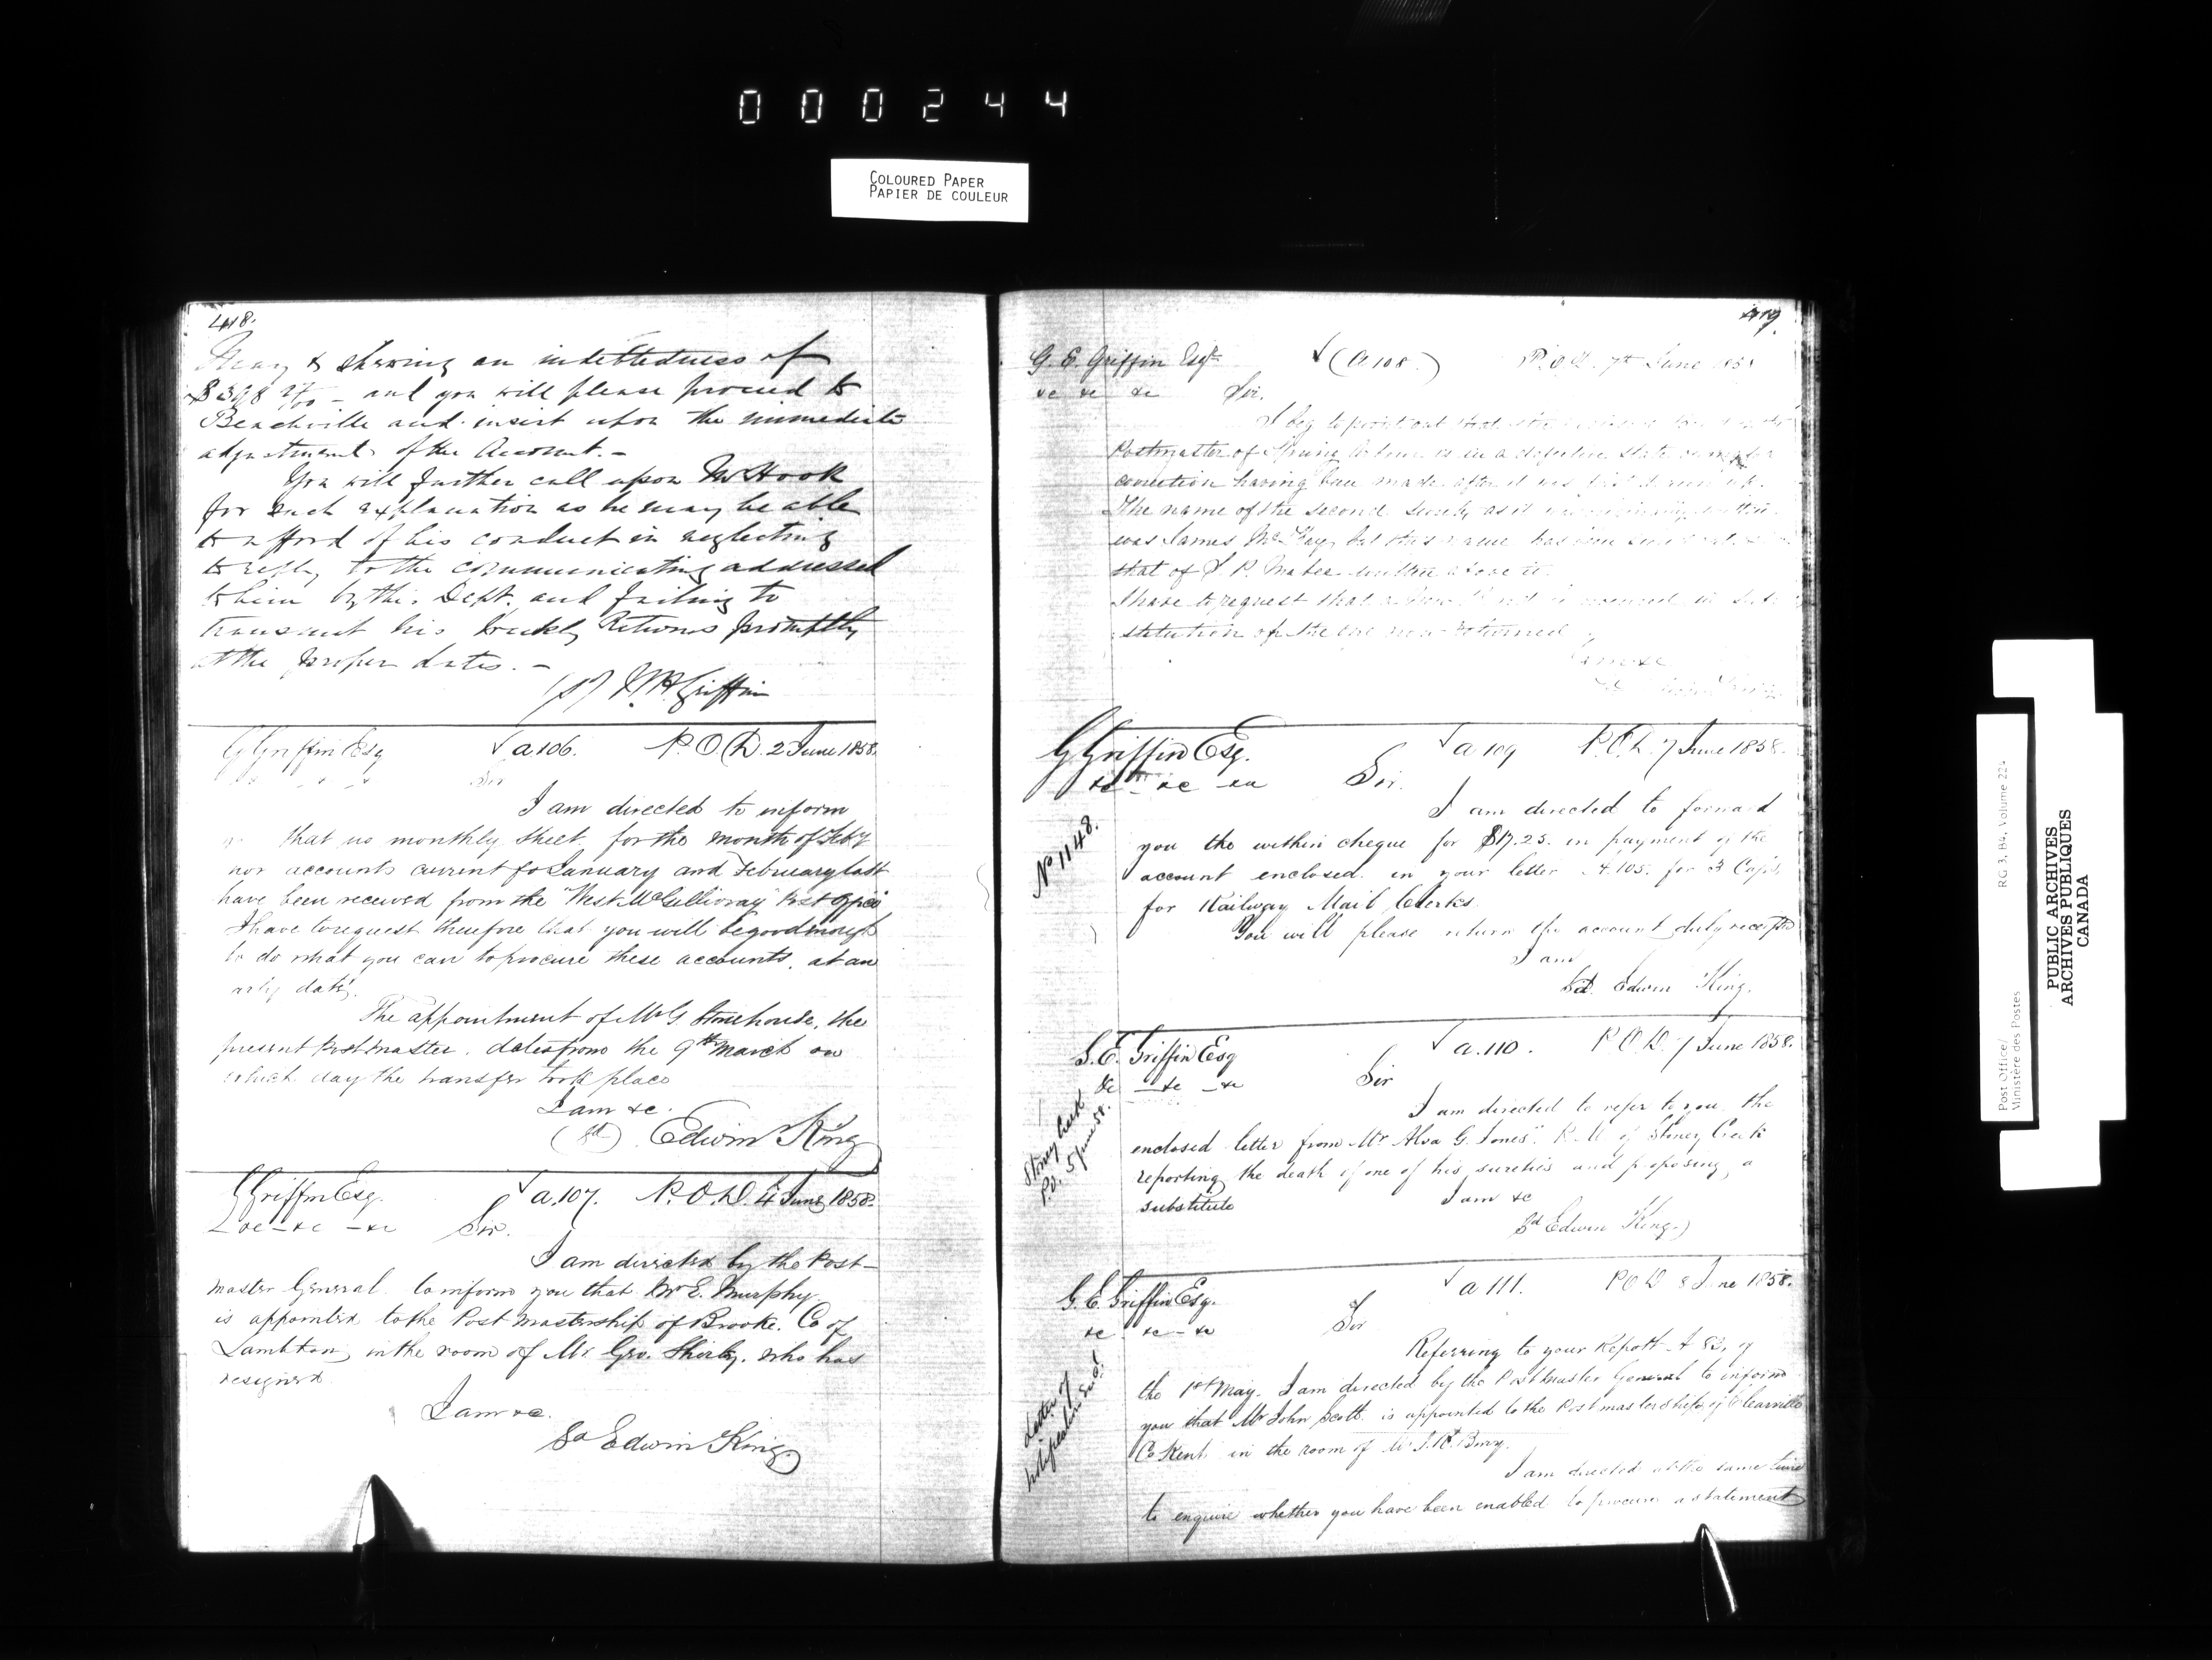 000244
COLOURED PAPER
PAPIER DE COULEUR
418.
May & shewing an indebtedness of
$398 — and you will please proceed to
Beachville and insist upon the immediate
adjustment of the Account. —
You will further call upon Mr Hook
for such explanation as he may be able
to afford of his conduct in neglecting
to reply to the communications addressed
to him by this Dept. and failing to
transmit his weekly Returns promptly
at the proper dates. —
Griffin
G Griffin Esq a 106. P.O.D. 2 June 1858.
Sir
I am directed to inform
that no monthly sheet for the month of Feby
nor accounts current for January and February last
have been received from the "West McGillivray" Post Office
I have to request therefore that you will be good enough
to do what you can to procure these accounts, at an
early date.
The appointment of Mr G Stonehouse, the
present Postmaster, dates from the 9th March on
which day the transfer took place
I am &c.
(Sd) Edwin King
G Griffin Esq. a.107. P.O.D. 4 June 1858.
&c — &c — &c Sir.
I am directed by the Post-
master General to inform you that Mr E. Murphy
is appointed to the Post Mastership of Brooke. Co of
Lambton, in the room of Mr Geo. Shirley. who has
resigned
I am &c.
Sd Edwin King
419
G. E. Griffin Esqr (a 108.) P.O.D. 7th June 1858
&c &c &c Sir.
I beg to point out that
Postmaster of Spring Arbour is in a defective state
correction having been made after it was
The name of the second Surety as it was originally written
was James McKay, but this name has been
that of S. P. Mabee written above it.
I have to request that
stitution of the one now returned
G Griffin Esq. a 109 P.O.D. 7 June 1858.
&c &c &c Sir.
No 1148.
I am directed to forward
you the within cheque for $17.25. in payment of the
account enclosed in your letter A.105. for 3 Caps,
for Railway Mail Clerks
You will please return the account duly receipted
I am
Sd. Edwin King.
G. E. Griffin Esq a.110. P.O.D. 7 June 1858.
&c — &c — &c Sir
Stoney Creek
P.O. 5 June 58.
I am directed to refer to you, the
enclosed letter from Mr Alva G. Jones. P.M. of Stoney Creek
reporting the death of one of his sureties and proposing a
substitute
I am &c
Sd Edwin King.)
G. E. Griffin Esq. a 111. P.O.D 8 June 1858.
&c &c — &c Sir
Letter of
Referring to your Report A 83, of
the 1st May. I am directed by the Postmaster General to inform
you that Mr John Scott is appointed to the Postmastership of Clearville
Co Kent in the room of Mr
I am directed at the same time
to enquire whether you have been enabled to procure a statement
Post Office/
Ministère des Postes
RG 3, B4, Volume 224
PUBLIC ARCHIVES
ARCHIVES PUBLIQUES
CANADA